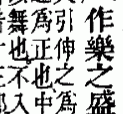 作樂之盛
引伸之爲
爲正也入中
舞也不